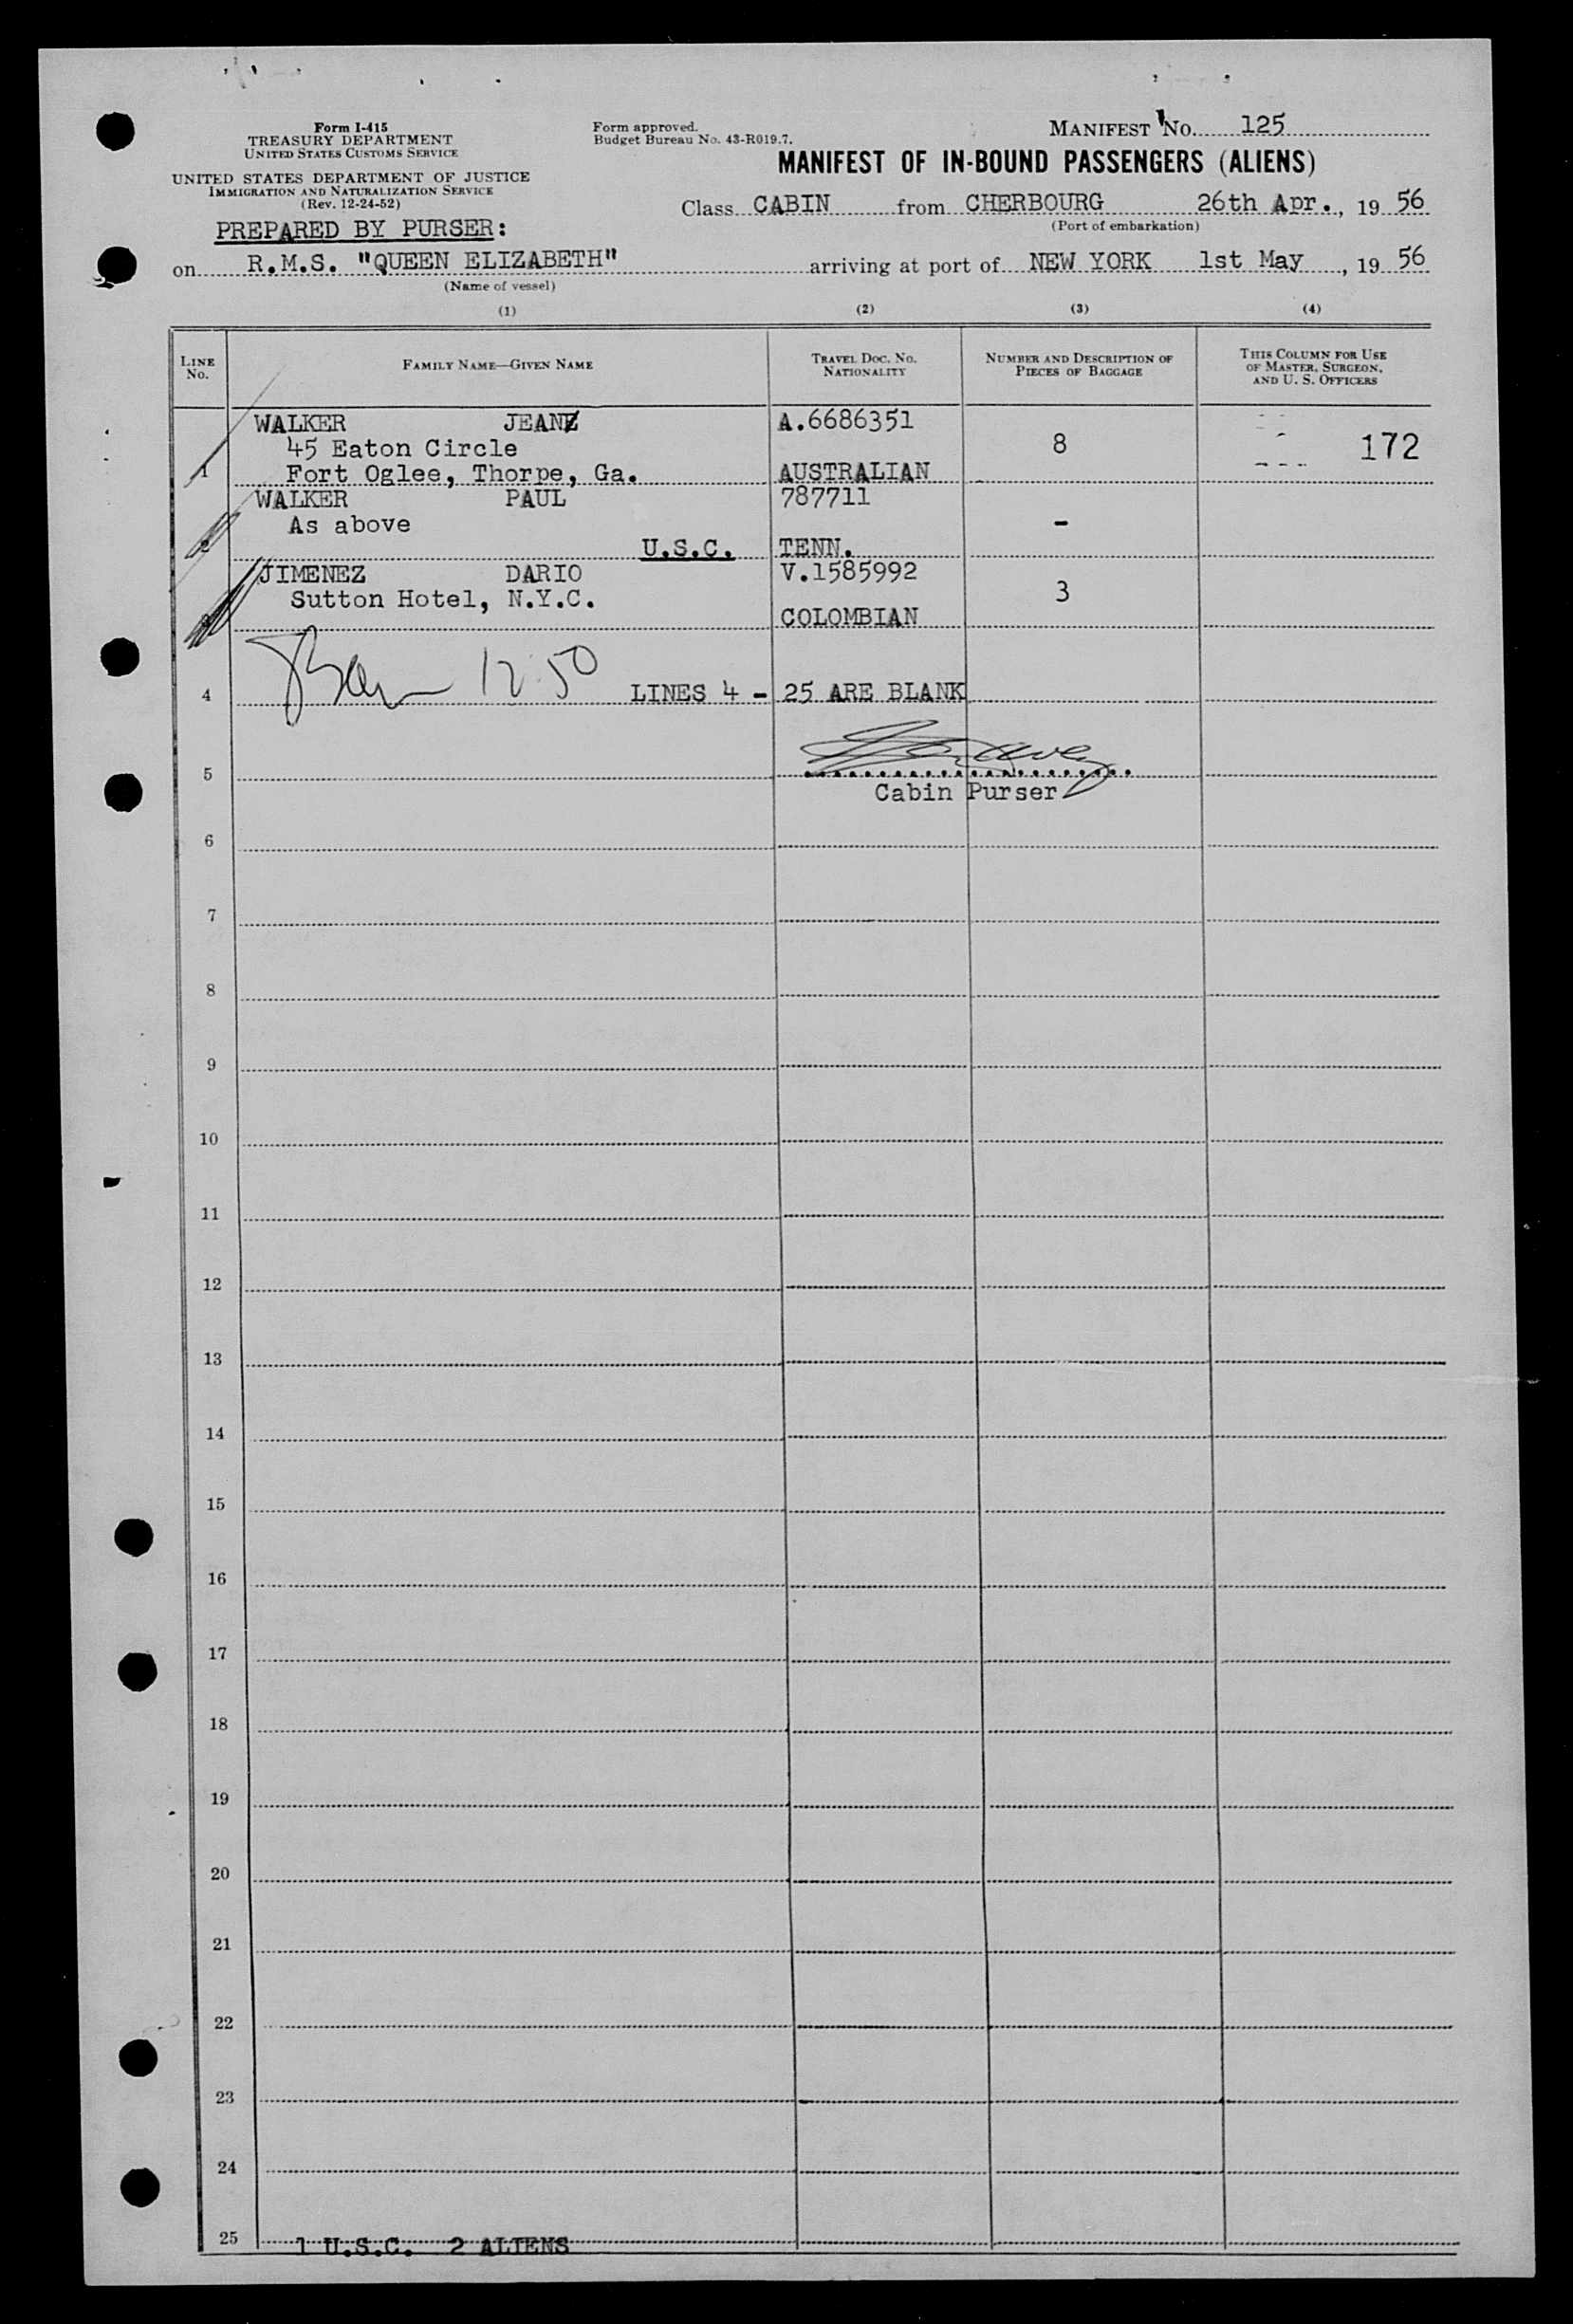 Form I-415
TREASURY DEPARTMENT
UNITED STATES CUSTOMS SERVICE
UNITED STATES DEPARTMENT OF JUSTICE
IMMIGRATION AND NATURALIZATION SERVICE
(Rev. 12-24-52)
PREPARED BY PURSER:
Form approved.
Budget Bureau No. 43-R019.7.
MANIFEST NO. 125
MANIFEST OF IN-BOUND PASSENGERS (ALIENS)
Class CABIN from CHERBOURG 26th Apr., 19 56
(Port of embarkation)
on R.M.S. "QUEEN ELIZABETH" arriving at port of NEW YORK 1st May, 19 56
(Name of vessel)
(1) (2) (3) (4)
LINE NO. FAMILY NAME—GIVEN NAME TRAVEL DOC. NO. NATIONALITY NUMBER AND DESCRIPTION OF PIECES OF BAGGAGE THIS COLUMN FOR USE OF MASTER, SURGEON, AND U. S. OFFICERS
WALKER JEAN A.6686351
45 Eaton Circle 8 172
1 Fort Oglee, Thorpe, Ga. AUSTRALIAN
WALKER PAUL 787711
As above -
2 U.S.C. TENN.
JIMENEZ DARIO V.1585992
Sutton Hotel, N.Y.C. 3
3 COLOMBIAN
12:50
4 LINES 4 - 25 ARE BLANK
5
Cabin Purser
6
7
8
9
10
11
12
13
14
15
16
17
18
19
20
21
22
23
24
25 1 U.S.C. 2 ALIENS